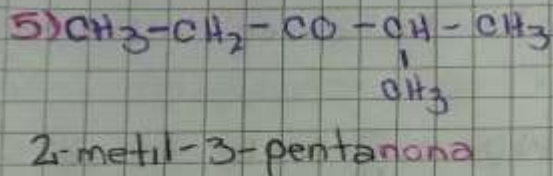 5) CH3-CH2-CO-CH-CH3
CH3
2-metil-3-pentanona